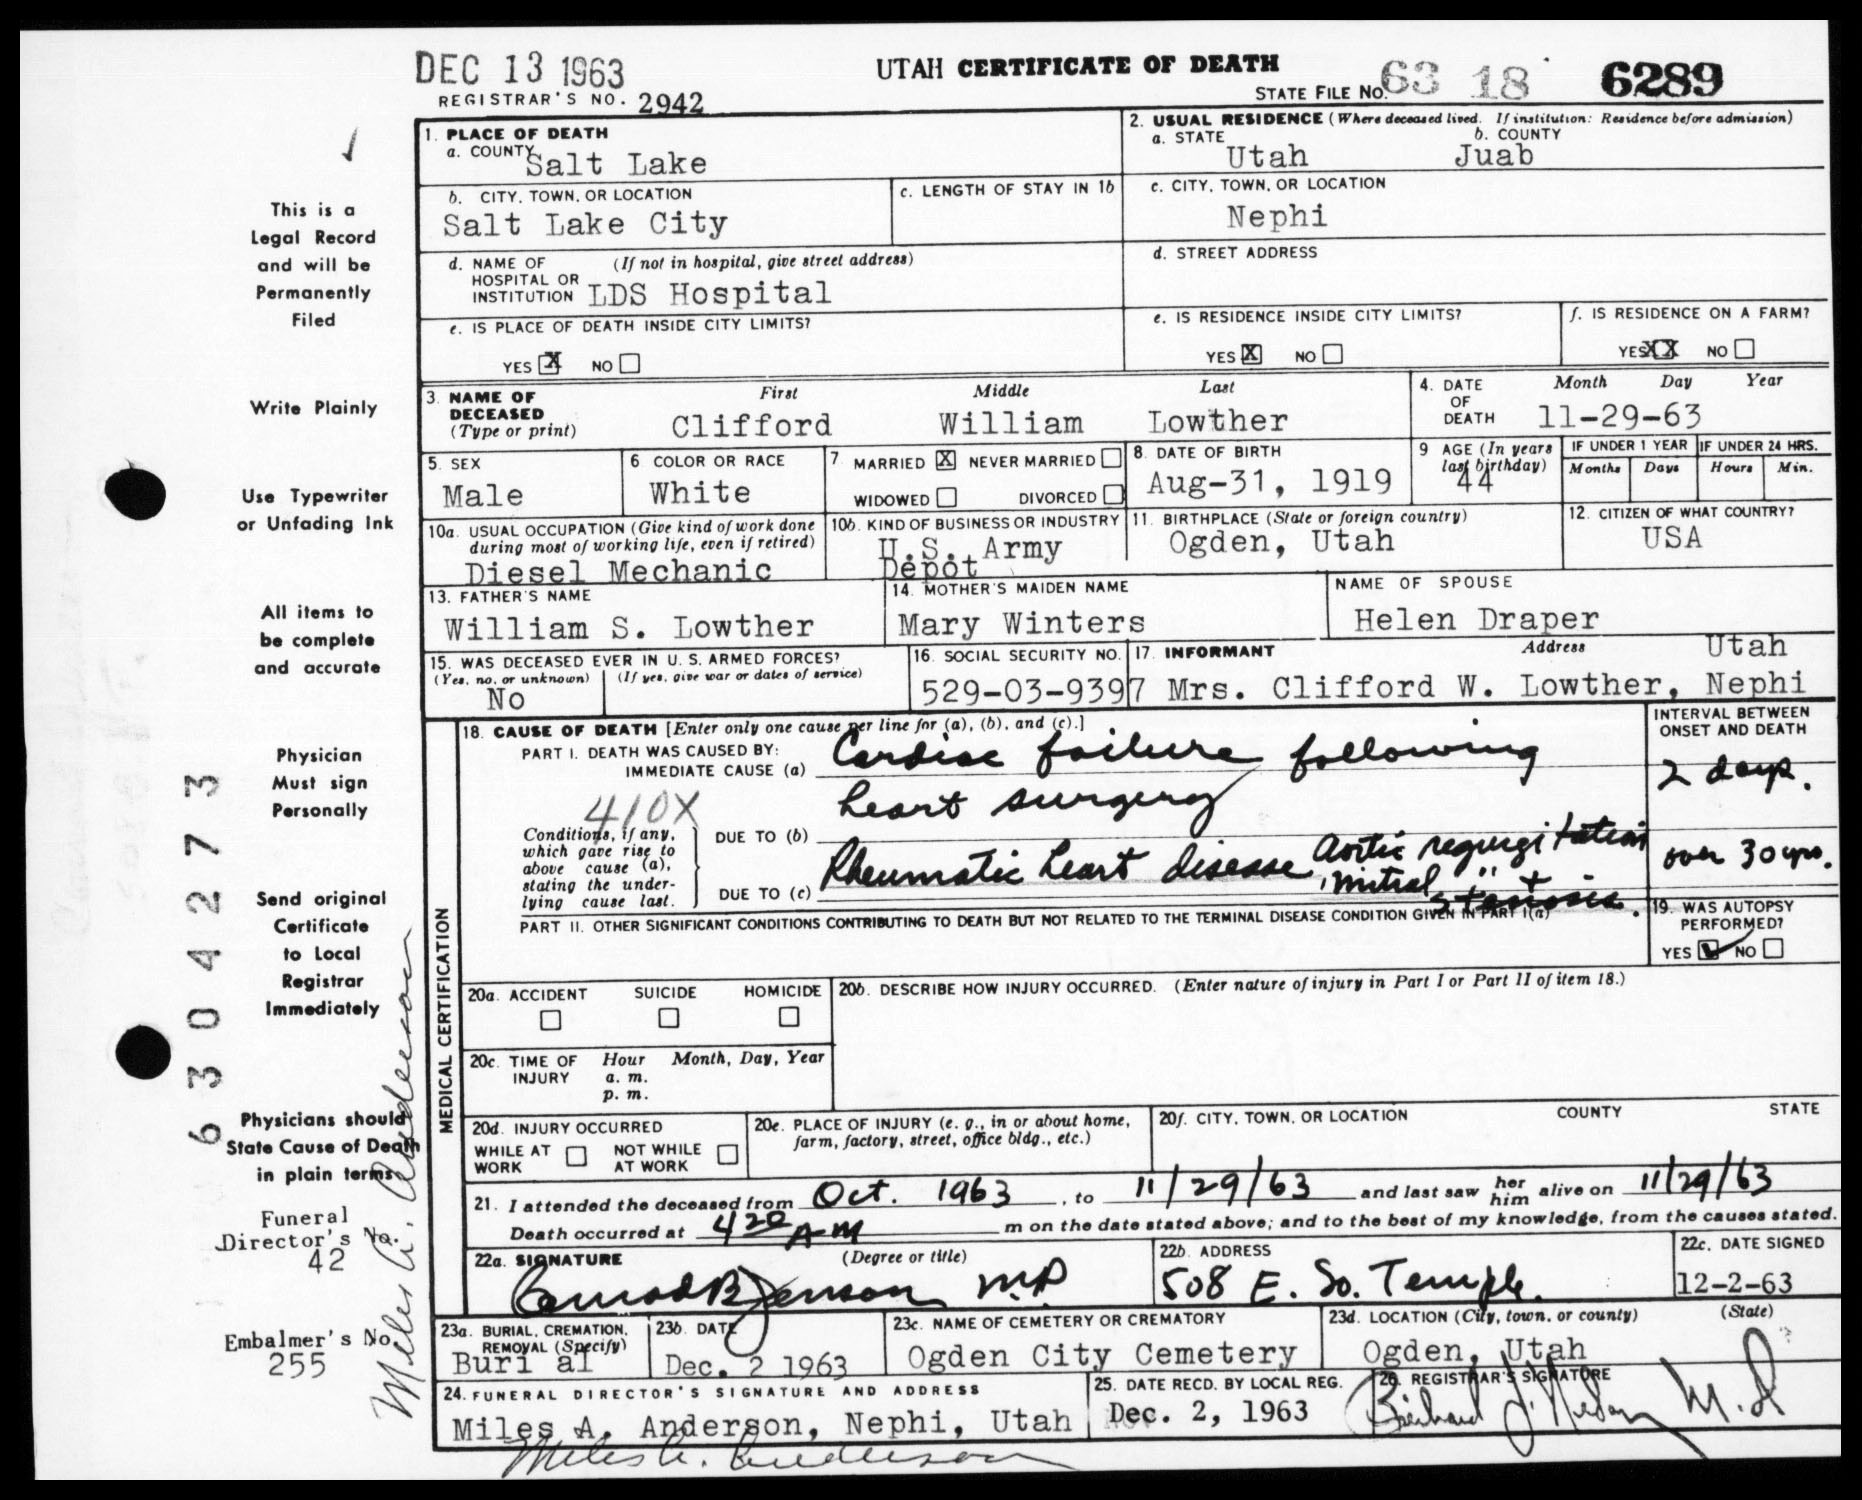 DEC 13 1963
UTAH CERTIFICATE OF DEATH
REGISTRAR'S NO. 2942
STATE FILE NO. 63 18 6289
This is a
Legal Record
and will be
Permanently
Filed
Write Plainly
Use Typewriter
or Unfading Ink
All items to
be complete
and accurate
Physician
Must sign
Personally
Send original
Certificate
to Local
Registrar
Immediately
Physicians should
State Cause of Death
in plain terms
Funeral
Director's No.
42
Embalmer's No.
255
630 4273
Miles A. Anderson
1. PLACE OF DEATH
a. COUNTY Salt Lake
2. USUAL RESIDENCE (Where deceased lived. If institution: Residence before admission)
a. STATE Utah b. COUNTY Juab
b. CITY, TOWN, OR LOCATION Salt Lake City
c. LENGTH OF STAY IN 1b
c. CITY, TOWN, OR LOCATION Nephi
d. NAME OF (If not in hospital, give street address)
HOSPITAL OR
INSTITUTION LDS Hospital
d. STREET ADDRESS
e. IS PLACE OF DEATH INSIDE CITY LIMITS?
YES X NO
e. IS RESIDENCE INSIDE CITY LIMITS?
YES X NO
f. IS RESIDENCE ON A FARM?
YES XX NO
3. NAME OF DECEASED (Type or print)
First Middle Last
Clifford William Lowther
4. DATE OF DEATH Month Day Year
11-29-63
5. SEX Male
6 COLOR OR RACE White
7 MARRIED X NEVER MARRIED
WIDOWED DIVORCED
8. DATE OF BIRTH
Aug-31, 1919
9 AGE (In years last birthday) 44
IF UNDER 1 YEAR Months Days
IF UNDER 24 HRS. Hours Min.
10a. USUAL OCCUPATION (Give kind of work done
during most of working life, even if retired)
Diesel Mechanic
10b. KIND OF BUSINESS OR INDUSTRY
U.S. Army
Depot
11. BIRTHPLACE (State or foreign country)
Ogden, Utah
12. CITIZEN OF WHAT COUNTRY?
USA
13. FATHER'S NAME
William S. Lowther
14. MOTHER'S MAIDEN NAME
Mary Winters
NAME OF SPOUSE
Helen Draper
15. WAS DECEASED EVER IN U. S. ARMED FORCES?
(Yes, no, or unknown) (If yes, give war or dates of service)
No
16. SOCIAL SECURITY NO.
529-03-9397
17. INFORMANT Address Utah
Mrs. Clifford W. Lowther, Nephi
MEDICAL CERTIFICATION
18. CAUSE OF DEATH [Enter only one cause per line for (a), (b), and (c).]
INTERVAL BETWEEN
ONSET AND DEATH
PART I. DEATH WAS CAUSED BY:
IMMEDIATE CAUSE (a) Cardiac failure following
heart surgery
2 days.
410X
Conditions, if any,
which gave rise to
above cause (a),
stating the under-
lying cause last.
DUE TO (b)
DUE TO (c) Rheumatic heart disease, Aortic regurgitation
mitral " +
stenosis.
over 30 yrs.
PART II. OTHER SIGNIFICANT CONDITIONS CONTRIBUTING TO DEATH BUT NOT RELATED TO THE TERMINAL DISEASE CONDITION GIVEN IN PART I(a)
19. WAS AUTOPSY
PERFORMED?
YES ✓ NO
20a. ACCIDENT SUICIDE HOMICIDE
20b. DESCRIBE HOW INJURY OCCURRED. (Enter nature of injury in Part I or Part II of item 18.)
20c. TIME OF INJURY Hour Month, Day, Year
a. m.
p. m.
20d. INJURY OCCURRED
WHILE AT WORK NOT WHILE AT WORK
20e. PLACE OF INJURY (e. g., in or about home,
farm, factory, street, office bldg., etc.)
20f. CITY, TOWN, OR LOCATION COUNTY STATE
21. I attended the deceased from Oct. 1963, to 11/29/63 and last saw her him alive on 11/29/63
Death occurred at 4 20 AM m on the date stated above; and to the best of my knowledge, from the causes stated.
22a. SIGNATURE (Degree or title)
Conrad B Jenson M.D
22b. ADDRESS
508 E. So. Temple.
22c. DATE SIGNED
12-2-63
23a. BURIAL, CREMATION,
REMOVAL (Specify)
Buri al
23b. DATE
Dec. 2 1963
23c. NAME OF CEMETERY OR CREMATORY
Ogden City Cemetery
23d. LOCATION (City, town, or county) (State)
Ogden, Utah
24. FUNERAL DIRECTOR'S SIGNATURE AND ADDRESS
Miles A. Anderson, Nephi, Utah
Miles A. Anderson
25. DATE RECD. BY LOCAL REG.
Dec. 2, 1963
26. REGISTRAR'S SIGNATURE
M.D